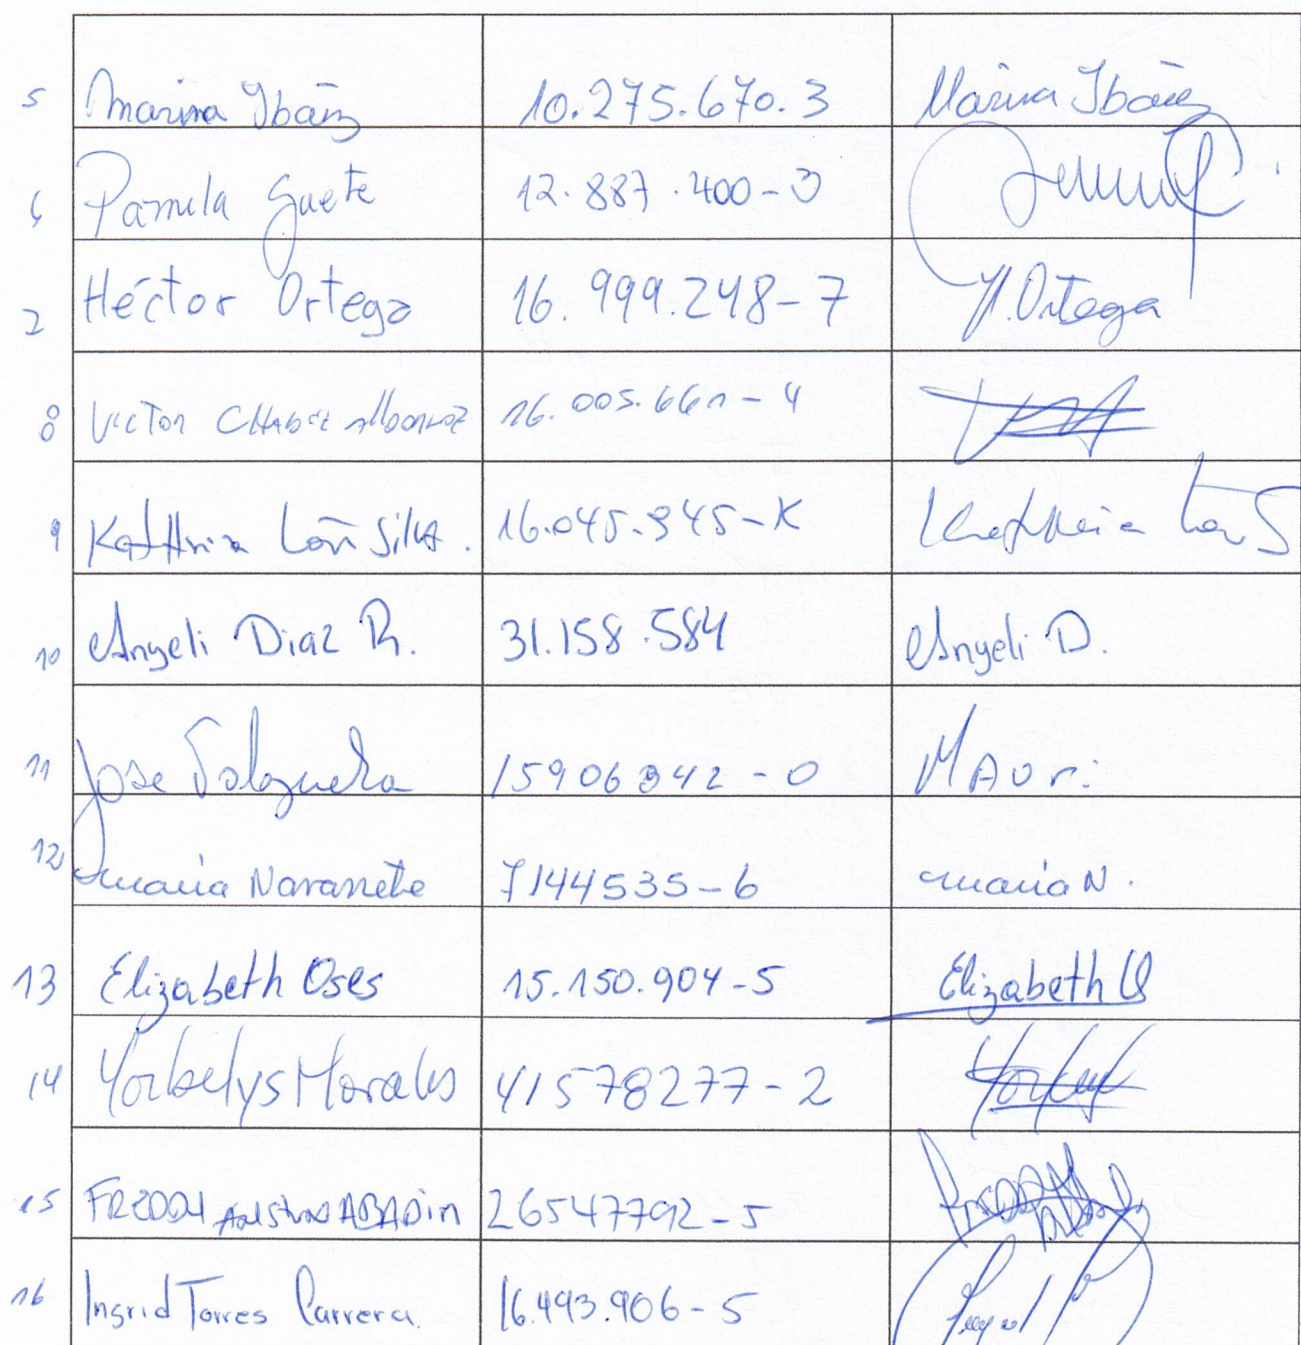 5 Marina Ibáñez 10.275.670.3 Marina Ibáñez
6 Pamela Gaete 12.887.400-3
7 Héctor Ortega 16.999.248-7 H. Ortega
8 Victor 16.005.661-4
9 Katthria Silva. 16.045.345-K
10 Angeli Diaz R. 31.158.584 Angeli D.
11 Jose 15906342-0
12 maria Navarrete 7144535-6 maria N.
13 Elizabeth Oses 15.150.904-5 Elizabeth O
14 Yorbelys Morales 41578277-2
15 FREDDY ABADIN 26547792-5
16 Ingrid Torres Carrera. 16.493.906-5